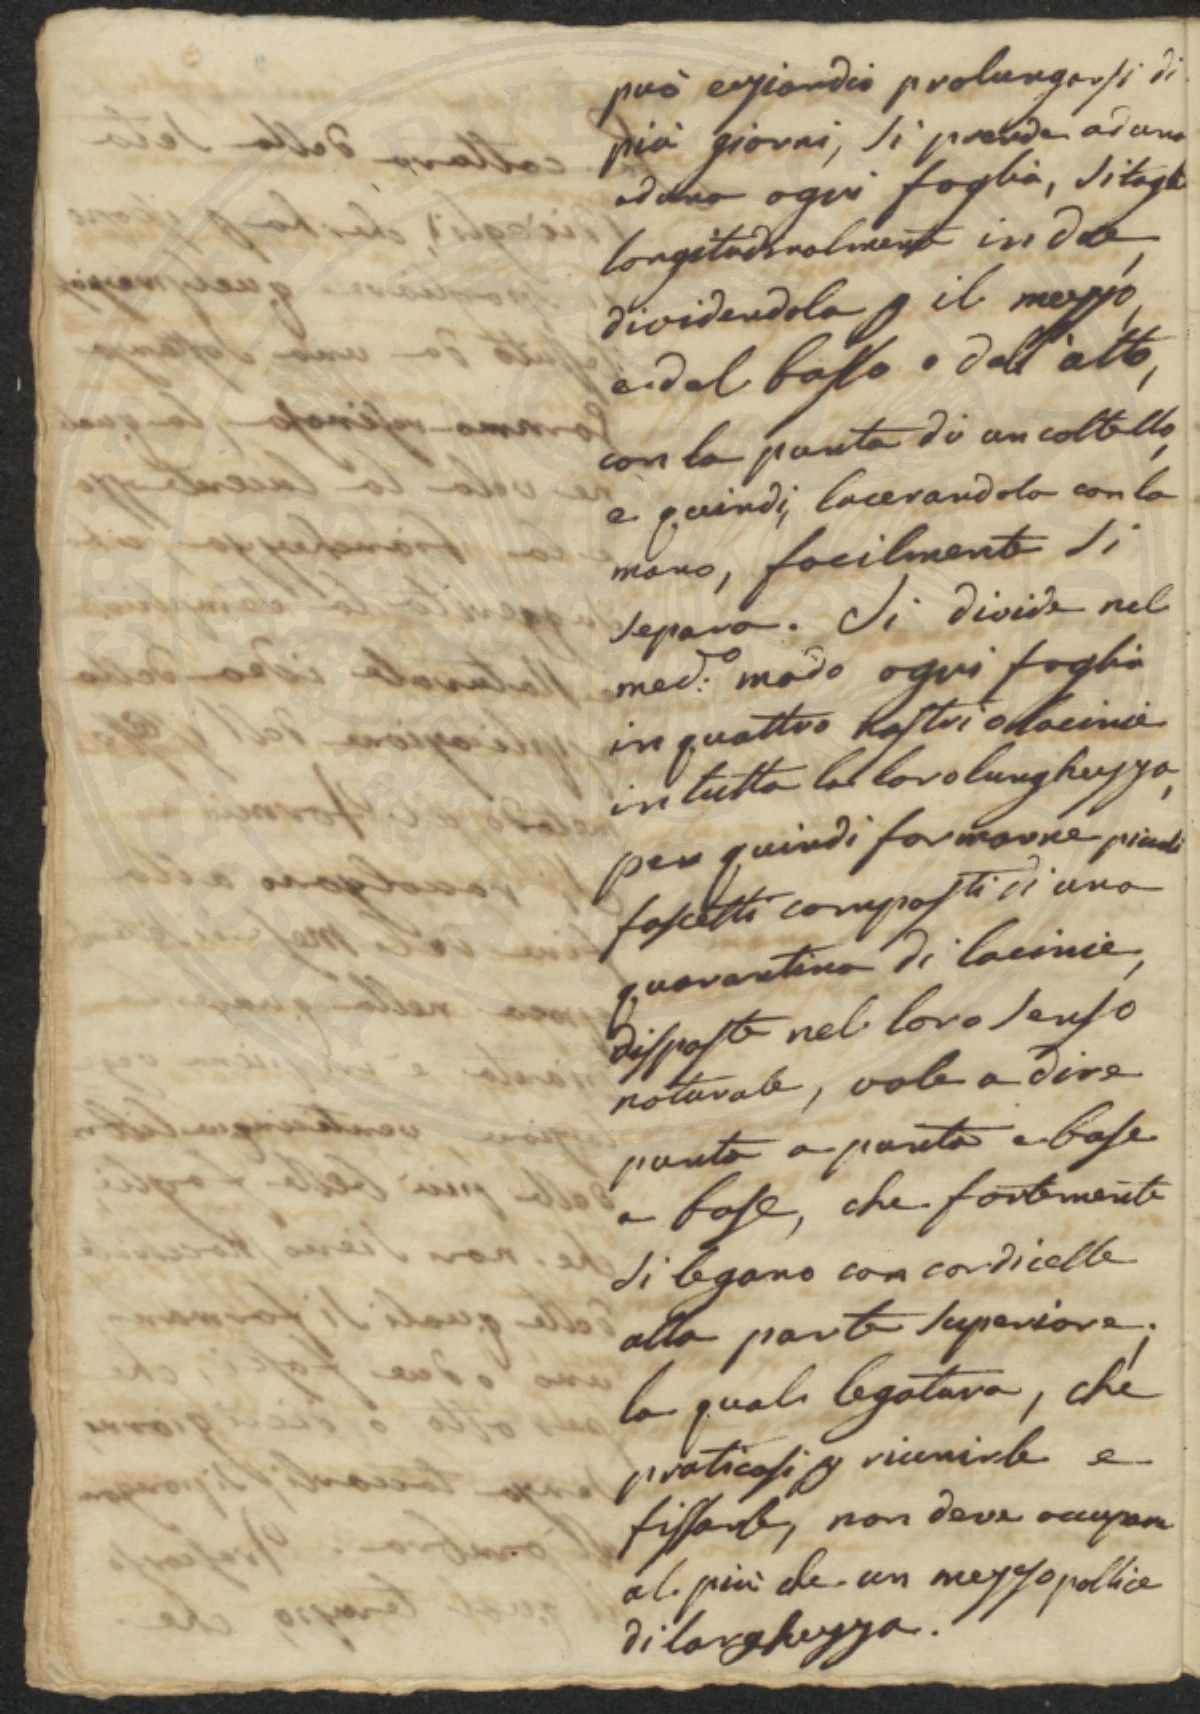 può eziandio prolungarsi di
più giorni, si prende ad una
ad una ogni foglia, si taglia
longitudinalmente in due,
dividendola p il mezzo,
e dal basso o dall'alto,
con la punta di un coltello,
e quindi, lacerandola con la
mano, facilmente si
separa. Si divide nel
med.º modo ogni foglia
in quattro nastri o lacinie
in tutta la loro lunghezza,
per quindi formarne piccoli
fascetti composti di una
quarantina di lacinie,
disposte nel loro senso
naturale, vale a dire
punta a punta e base
a base, che fortemente
si legano con cordicelle
alla parte superiore;
la quale legatura, che
praticasi p riunirle e
fissarle, non deve occupare
al più che un mezzo pollice
di larghezza.